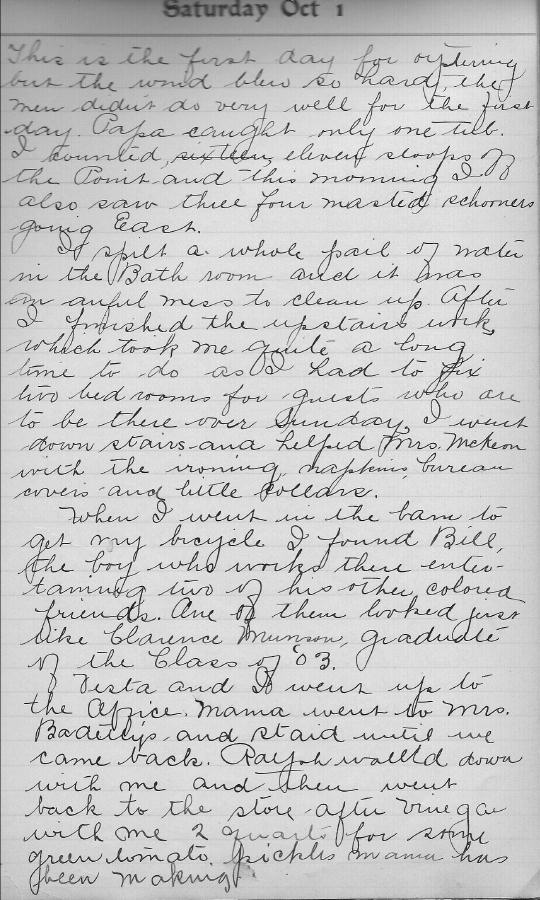 Saturday Oct 1
This is the first day for oystering
but the wind blew so hard, the
men didn't do very well for the first
day. Papa caught only one tub.
I counted, sixteen, eleven sloops off
the Point and this morning I
also saw three four masted schooners
going East.
I spilt a whole pail of water
in the Bath room and it was
an awful mess to clean up. After
I finished the upstairs work,
which took me quite a long
time to do as I had to fix
two bed rooms for guests who are
to be there over Sunday, I went
down stairs and helped Mrs. McKeon
with the ironing, napkins, bureau
covers and little collars.
When I went in the barn to
get my bicycle I found Bill,
the boy who works there enter-
taining two of his other colored
friends. One of them looked just
like Clarence Munson, graduate
of the Class of '03.
Vesta and I went up to
the Office. Mama went to Mrs.
and staid until we
came back. Ralph walk'd down
with me and then went
back to the store after vinegar
with me 2 quarts for some
green tomato pickles mama has
been making.